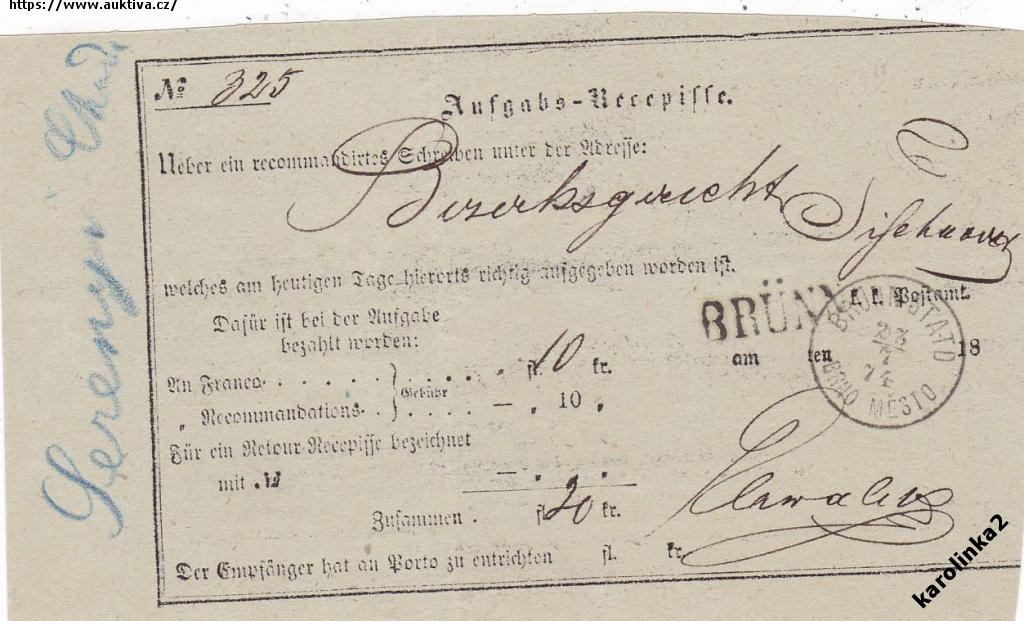 https://www.auktiva.cz/
№ 325
Aufgabs-Recepisse.
Ueber ein recommandirtes Schreiben unter der Adresse:
Bezirksgericht Tischnowitz
welches am heutigen Tage hierorts richtig aufgegeben worden ist.
Dafür ist bei der Aufgabe
bezahlt worden:
BRÜNN k. k. Postamt
am ten 18
BRÜNN STADT
23
7
74
BRNO MĚSTO
An Franco . . . . . . } Gebühr . . . . . fl. 10 kr.
„ Recommandations . . . . . . — „ 10 „
Für ein Retour-Recepisse bezeichnet
mit № — „ „
Zusammen . fl. 20 kr.
Der Empfänger hat an Porto zu entrichten fl. kr.
Serenyi
karolinka2